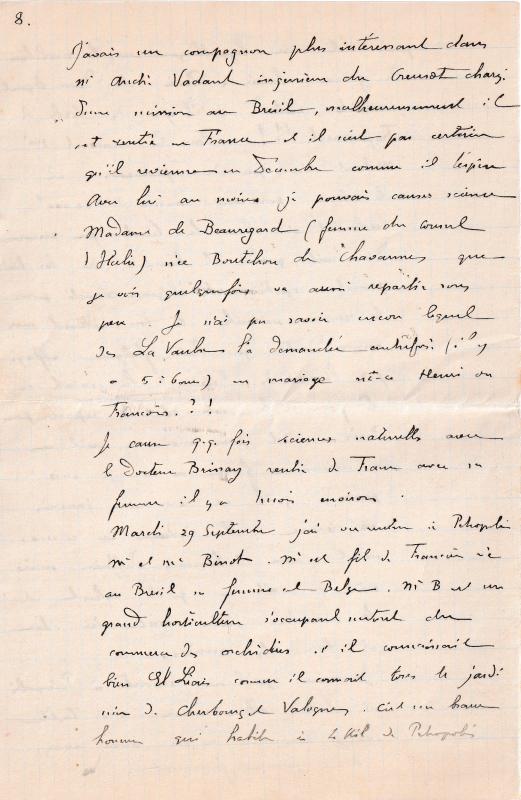 8.
J'avais un compagnon plus intéressant dans
Mr André Vadant ingénieur du Creusot chargé
d'une mission au Brésil, malheureusement il
est rentré en France et il n'est pas certain
qu'il revienne en Décembre comme il l'espère
Avec lui au moins je pouvais causer science
Madame de Beauregard (femme du consul
d'Italie) née Boutchon de Chavannes que
je vois quelquefois va aussi repartir sous
peu. Je n'ai pu savoir encore lequel
des La Vaulx l'a demandée autrefois (il y
a 5 à 6 ans) en mariage est-ce Henri ou
François. ? !
Je cause q.q. fois sciences naturelles avec
le Docteur Brissay rentré de France avec sa
femme il y a 1 mois environ.
Mardi 29 Septembre j'ai vu à Petropolis
Mr et Me Binot. Mr est fils de Français né
au Brésil sa femme est Belge. Mr B est un
grand horticulteur s'occupant surtout du
commerce des orchidées. il connaissait
bien El Liais comme il connait tous les jardi
niers de Cherbourg et Valognes. C'est un brave
homme qui habite à 2 Kil de Petropolis